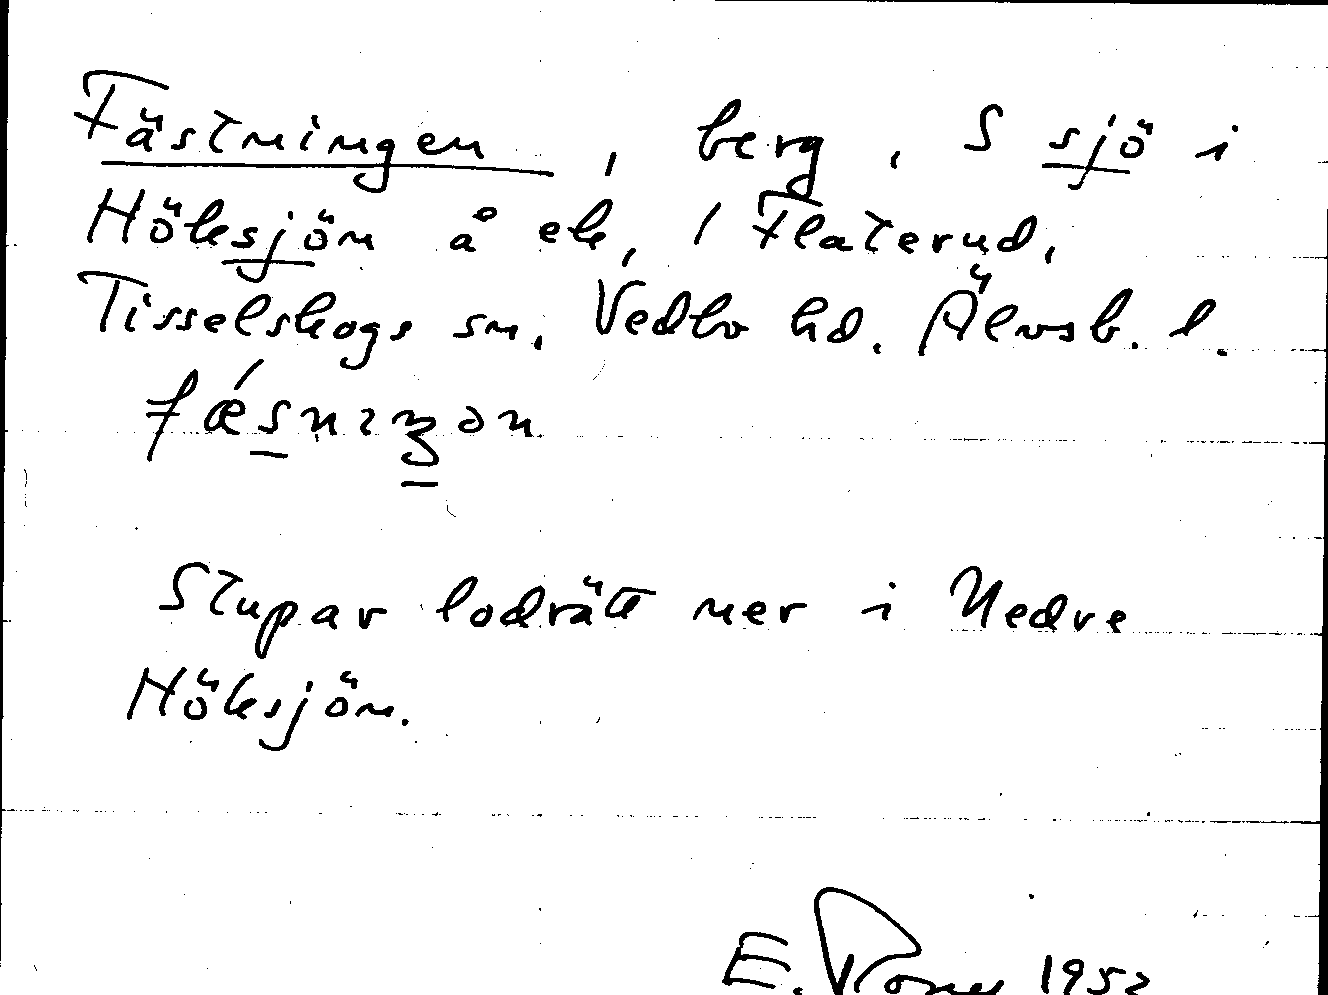 Fästningen, berg, S sjö i
Höksjön å ek, / Flaterud,
Tisselskogs sn, Vedbo hd. Älvsb. l.
Stupar lodrätt ner i Nedre
Höksjön.
E. 1952